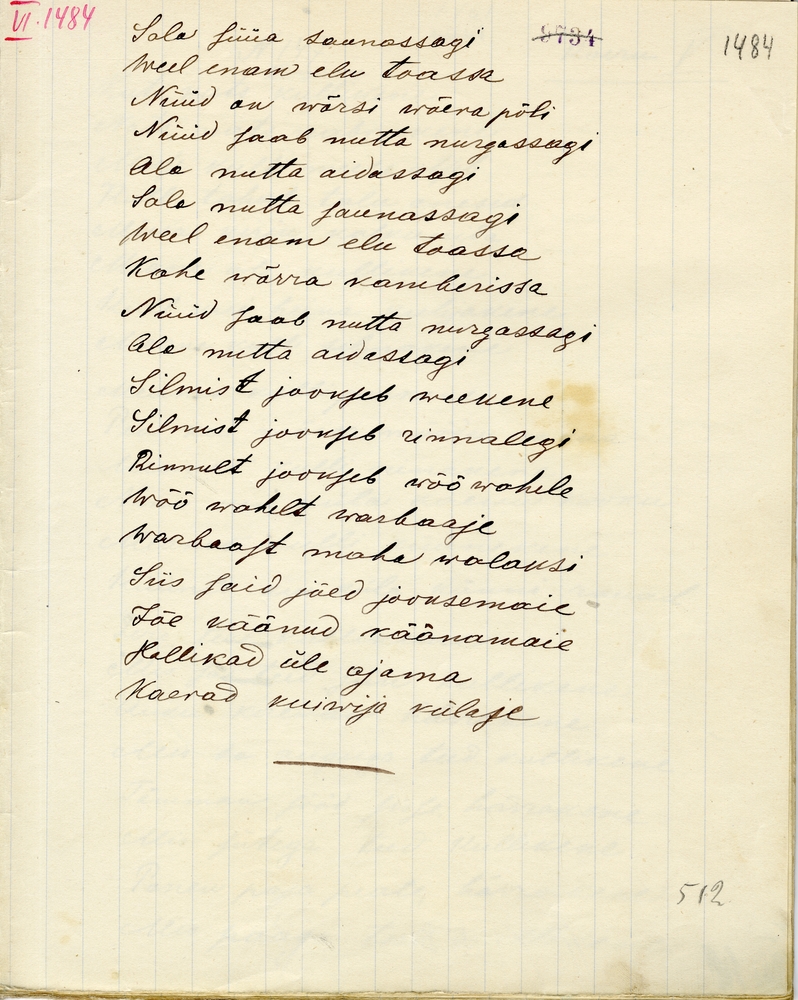 VI. 1484
9734
1484
Sala süüa saunassagi
Weel enam elu toassa
Nüüd on wõrsi wõera põli
Nüüd saab nutta nurgassagi
Ala nutta aidassagi
Sala nutta saunassagi
Weel enam elu toassa
Kahe wõrra kamberissa
Nüüd saab nutta nurgassagi
Ala nutta aidassagi
Silmist jookseb weekene
Silmist jookseb rinnalegi
Rinnult jookseb wöö wahele
Wöö wahelt warbaaje
Warbaast maha walaksi
Siis said jõed jooksemaie
Jõe käänud käänamaie
Hallikad üle ajama
Kaevad kuiwija külaje
512